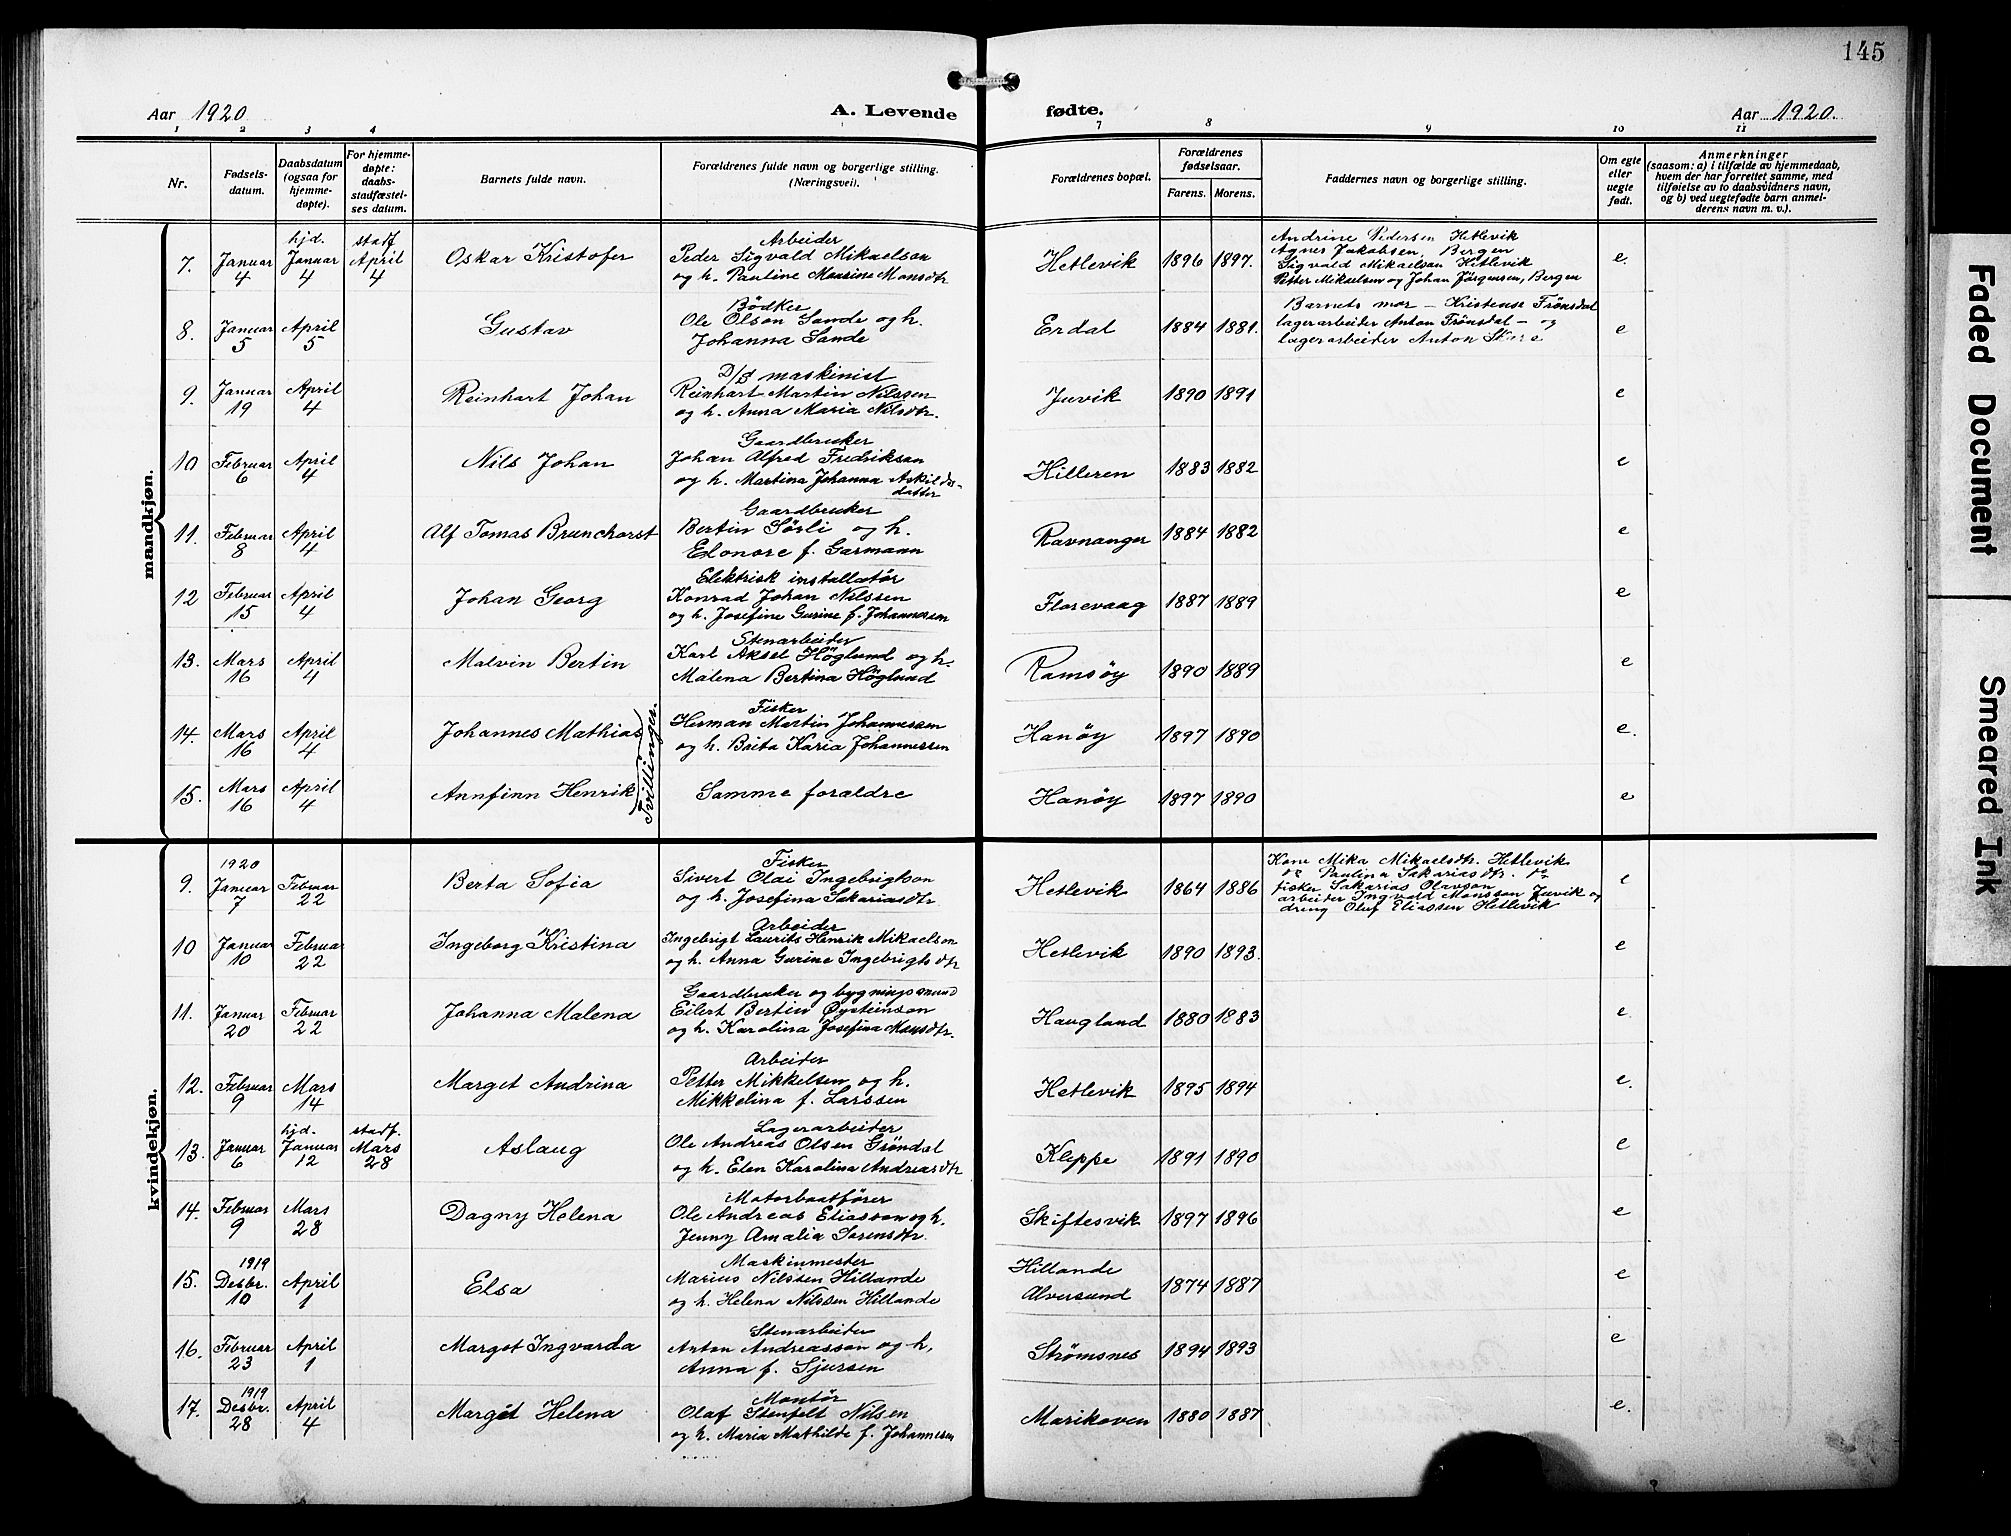 145
Aar 1920
A. Levende
fødte.
Aar 1920.
1 2 3 4 7 8 9 10 11
Nr.
Fødsels-
datum.
Daabsdatum
(ogsaa for
hjemme-
døpte).
For hjemme-
døpte:
daabs-
stadfæstel-
ses datum.
Barnets fulde navn.
Forældrenes fulde navn og borgerlige stilling.
(Næringsvei).
Forældrenes bopæl.
Forældrenes
fødselsaar.
Farens. Morens.
Faddernes navn og borgerlige stilling.
Om egte
eller
uegte
født.
Anmerkninger
(saasom: a) i tilfælde av hjemmedaab,
hvem der har forrettet samme, med
tilføielse av to daabsvidners navn,
og b) ved uegtefødte barn anmel-
derens navn m. v.).
mandkjøn.
7. Januar 4 hjd. Januar 4 stadf April 4 Oskar Kristofer
Arbeider
Peder Sigvald Mikaelson
og h. Pauline Monsine Monsdtr
Hetlevik 1896 1897.
Andrine Pedersen Hetlevik
Agnes Jakobsen, Bergen
Sigvald Mikaelsen Hetlevik
Petter Mikaelsen og Johan Jörgensen, Bergen
e.
8. Januar 5 April 5 Gustav
Bödker
Ole Olson Sande og h.
Johanna Sande
Erdal 1884 1881.
Barnets mor – Kristense Frönsdal
lagerarbeider Anton Frönsdal – og
lagerarbeider Anton
e
9. Januar 19 April 4 Reinhart Johan
D/S maskinist
Reinhart Martin Nilssen
og h. Anna Maria Nilsdtr.
Juvik 1890 1891 e
10 Februar 6 April 4 Nils Johan
Gaardbruker
Johan Alfred Fredrikson
og h. Martina Johanna Askilds-
datter
Hilleren 1883 1882 e
11. Februar 8 April 4 Alf Tomas Brunchorst
Gaardbruker
Bertin Sörli og h.
Elonore f. Garmann
Ravnanger 1884 1882 e
12 Februar 15 April 4 Johan Georg
Elektrisk installatør
Konrad Johan Nilssen
og h. Josefine Gurine f. Johannessen
Florevaag 1887 1889 e
13. Mars 16 April 4 Malvin Bertin
Stenarbeider
Karl Aksel Höglund og h.
Malena Bertina Höglund
Ramsøy 1890 1889 e
14. Mars 16 April 4 Johannes Mathias
Tvillinger.
Fisker
Herman Martin Johannessen
og h. Brita Karia Johannessen
Hanøy 1897 1890 e.
15. Mars 16 April 4 Annfinn Henrik
Samme forældre
Hanøy 1897 1890 e
kvindekjøn.
9. 1920 Januar 7 Februar 22 Berta Sofia
Fisker
Sivert Olai Ingebrigtson
og h. Josefina Sakariasdtr
Hetlevik 1864 1886
Kone Mika Mikaelsdtr. Hetlevik
do Paulina Sakariasdtr. do
fisker Sakarias Olavson
arbeider Ingvald Monsson Juvik og
dreng Oluf Eliassen Hetlevik
e
10 Januar 10 Februar 22 Ingeborg Kristina
Arbeider
Ingebrigt Laurits Henrik Mikaelson
og h. Anna Gurine Ingebrigtsdtr
Hetlevik 1890 1893. e
11. Januar 20 Februar 22 Johanna Malena
Gaardbruker og bygningsmand
Eilert Bertin Øysteinson
og h. Karolina Josefina Monsdtr.
Haugland 1880 1883 e.
12. Februar 9 Mars 14 Marget Andrina
Arbeider
Petter Mikkelsen og h.
Mikkelina f. Larssen
Hetlevik 1895 1894 e.
13. Januar 6 hjd. Januar 12 stadf. Mars 28 Aslaug
Lagerarbeider
Ole Andreas Olsen Gröndal
og h. Elen Karolina Andreasdtr
Kleppe 1891 1890 e
14. Februar 9 Mars 28 Dagny Helena
Motorbaatfører
Ole Andreas Eliasson og h.
Jenny Amalia Sorensdtr.
Skiftesvik 1897 1896 e
15. 1919 Desbr. 10 April 1 Elsa
Maskinmester
Marius Nilssen Hillande
og h. Helena Nilssen Hillande
Hillande
Alversund
1874 1887 e
16. Februar 23 April 1 Margot Ingvarda
Stenarbeider
Anton Andreasson og h.
Anna f. Sjursen
Strømsnes 1894 1893 e
17. 1919 Desbr. 28 April 4 Margit Helena
Montør
Olaf Stenfelt Nilsen
og h. Maria Mathilde f. Johannesen
Marikoven 1880 1887 e.
Faded Document
Smeared Ink